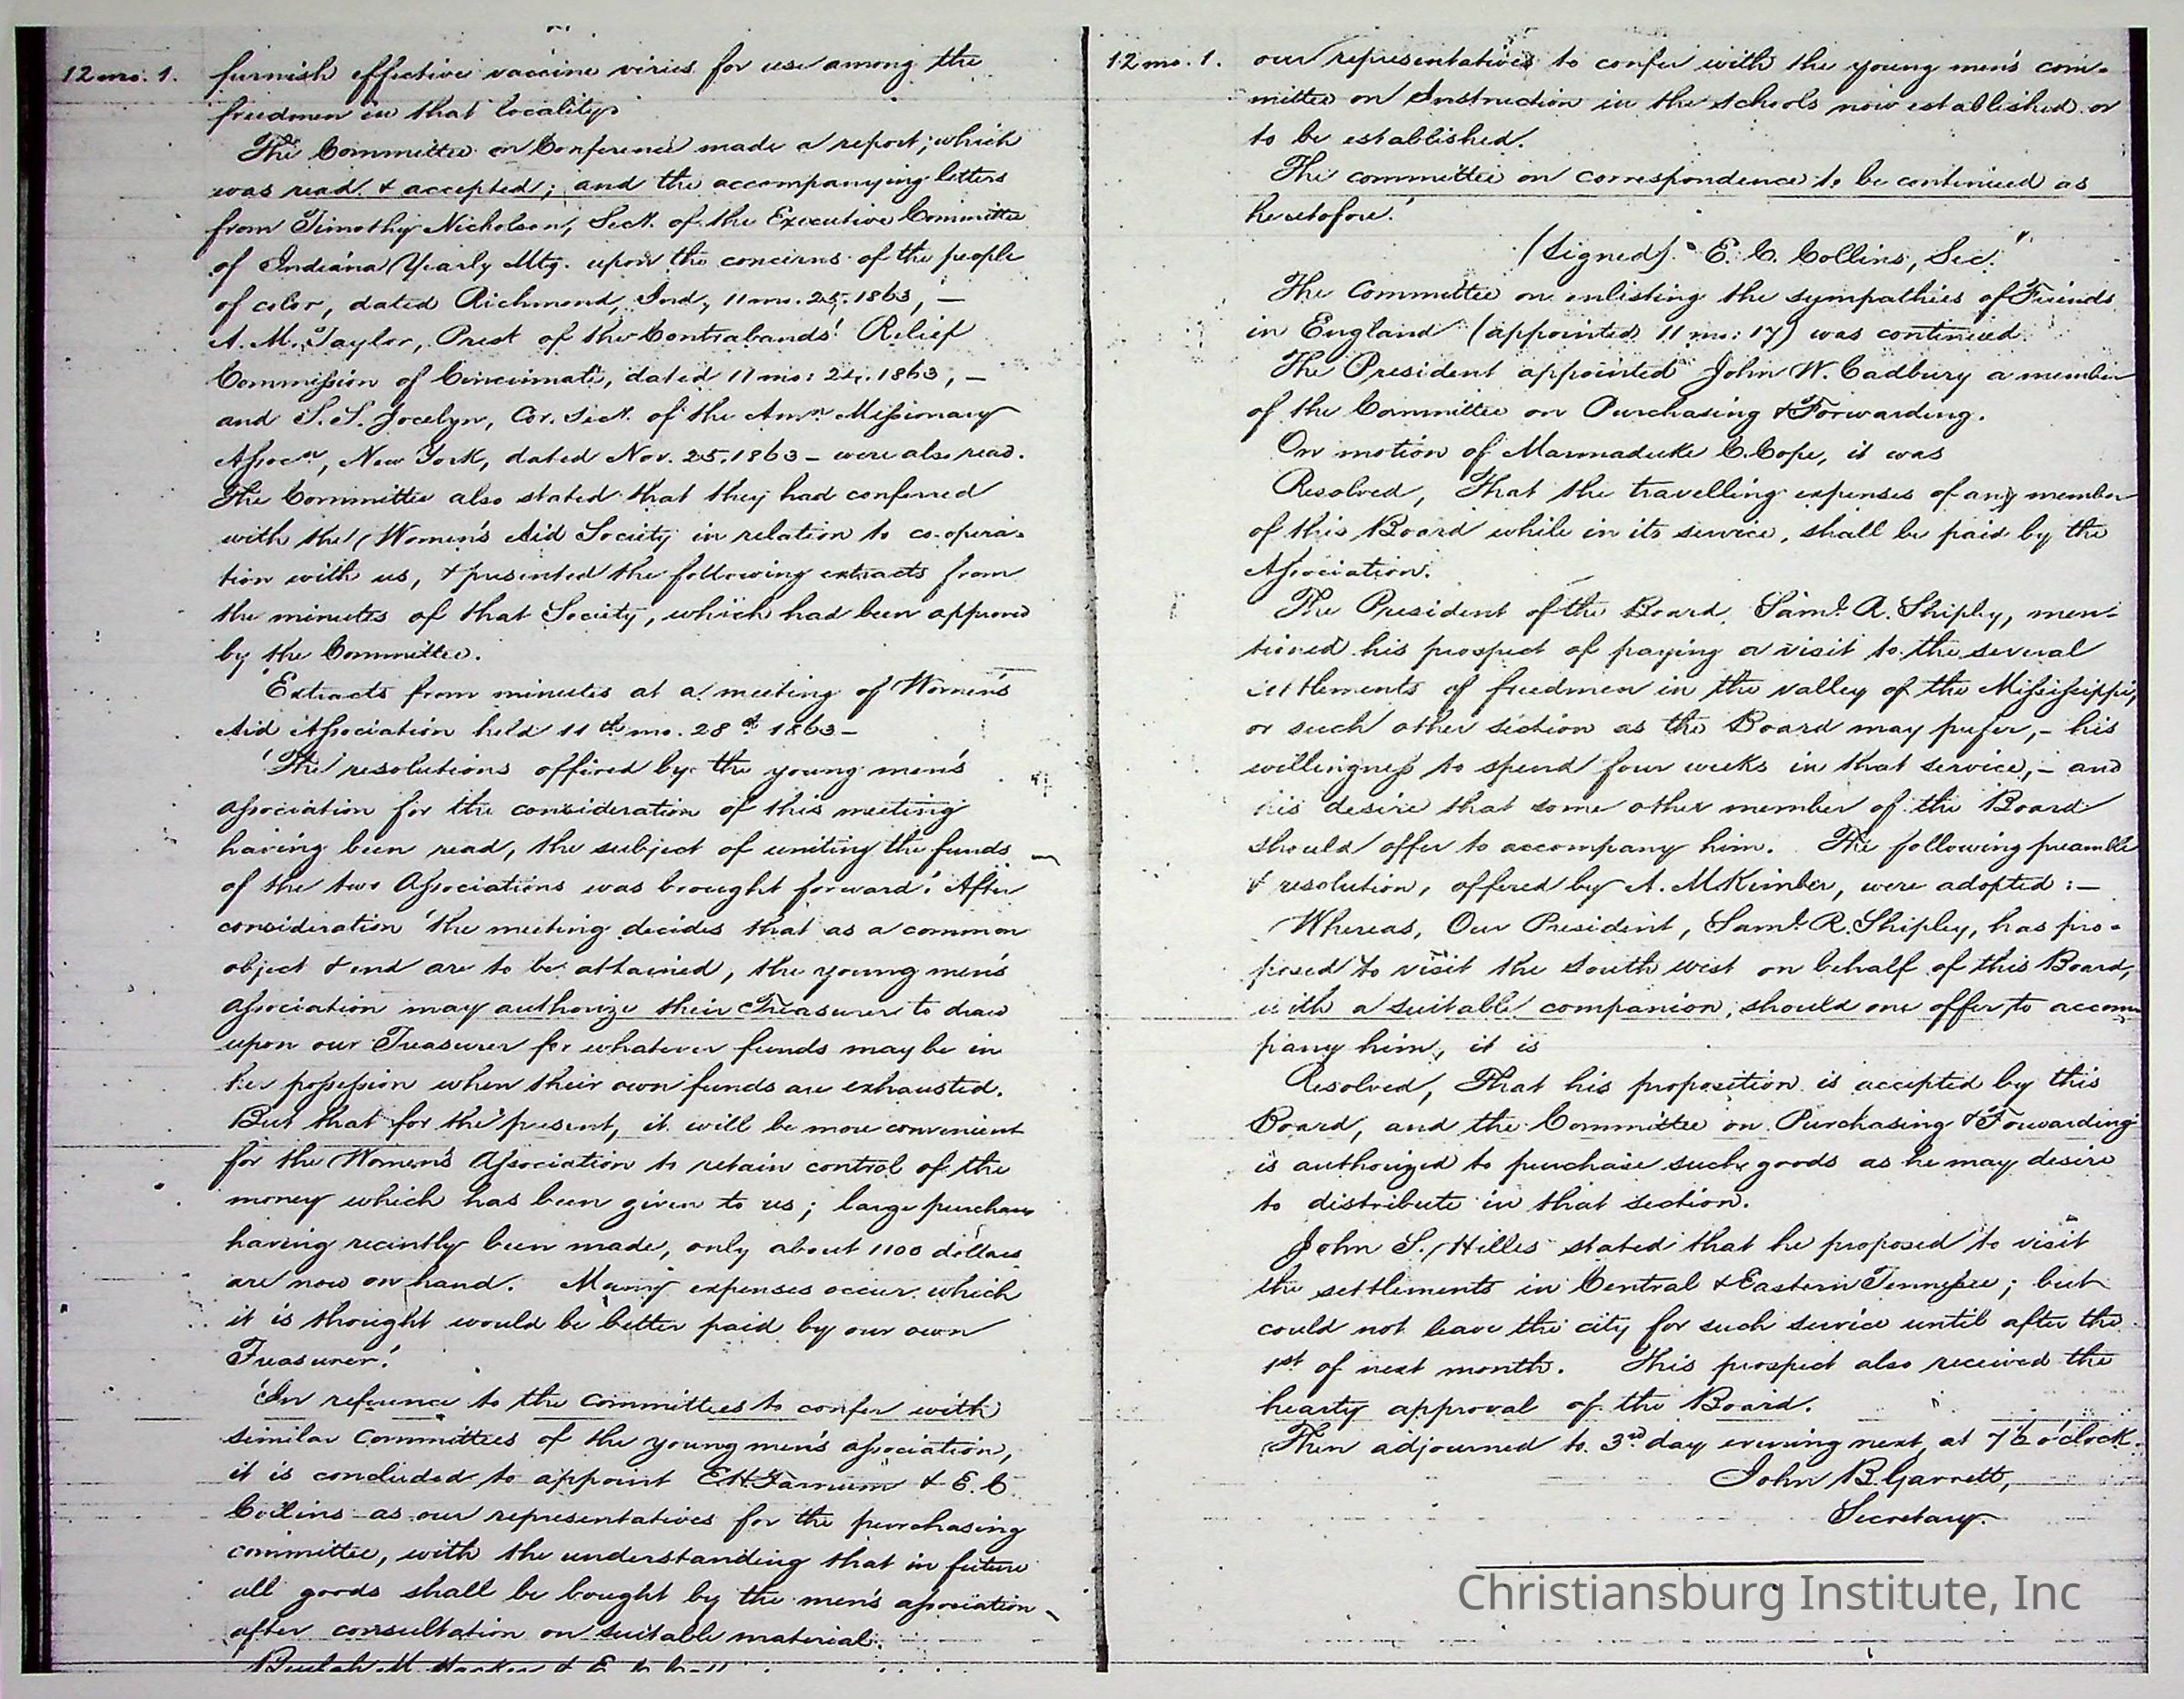 12 mo. 1.
furnish effective vaccine virus for use among the
freedmen in that locality.
The Committee on Conference made a report, which
was read & accepted; and the accompanying letters
from Timothy Nicholson, Sect. of the Executive Committee
of Indiana Yearly Mtg. upon the concerns of the people
of color, dated Richmond, Ind., 11 mo. 25, 1863, —
A. M. Taylor, Prest of the Contrabands' Relief
Commission of Cincinnati, dated 11 mo: 24. 1863, —
and S. S. Jocelyn, Cor. Sect. of the Amn. Missionary
Assocn, New York, dated Nov. 25. 1863 – were also read.
The Committee also stated that they had conferred
with the Women's Aid Society in relation to co-opera-
tion with us, & presented the following extracts from
the minutes of that Society, which had been approved
by the Committee.
"Extracts from minutes at a meeting of Women's
Aid Association held 11th mo. 28th 1863 –
'The resolutions offered by the young men's
association for the consideration of this meeting
having been read, the subject of uniting the funds
of the two Associations was brought forward.' After
consideration 'the meeting decides that as a common
object & end are to be attained, the young men's
association may authorize their Treasurer to draw
upon our Treasurer for whatever funds may be in
her possession when their own funds are exhausted.
But that for the present, it will be more convenient
for the Women's Association to retain control of the
money which has been given to us; large purchases
having recently been made, only about 1100 dollars
are now on hand. Many expenses occur which
it is thought would be better paid by our own
Treasurer.'
'In reference to the Committees to confer with
similar Committees of the young men's association,
it is concluded to appoint E. H. Farnum & E. C.
Collins as our representatives for the purchasing
committee, with the understanding that in future
all goods shall be bought by the men's association –
after consultation on suitable material.
Beulah M.
12 mo. 1.
our representatives to confer with the young men's com-
mittee on Instruction in the schools now established or
to be established.
The committee on correspondence to be continued as
heretofore.'
(Signed). "E. C. Collins, Sec."
The Committee on enlisting the sympathies of Friends
in England (appointed 11 mo: 17) was continued.
The President appointed John W. Cadbury a member
of the Committee on Purchasing & Forwarding.
On motion of Marmaduke C. Cope, it was
Resolved, That the travelling expenses of any member
of this Board while in its service, shall be paid by the
Association.
The President of the Board, Saml. R. Shipley, men-
tioned his prospect of paying a visit to the several
settlements of freedmen in the valley of the Mississippi,
or such other section as the Board may prefer, – his
willingness to spend four weeks in that service, – and
his desire that some other member of the Board
should offer to accompany him. The following preamble
& resolution, offered by A. M Kimber, were adopted: –
Whereas, Our President, Saml. R. Shipley, has pro-
posed to visit the South west on behalf of this Board,
with a suitable companion, should one offer to accom-
pany him, it is
Resolved, That his proposition is accepted by this
Board, and the Committee on Purchasing & Forwarding
is authorized to purchase such goods as he may desire
to distribute in that section.
John S. Hilles stated that he proposed to visit
the settlements in Central & Eastern Tennessee; but
could not leave the city for such service until after the
1st of next month. This prospect also received the
hearty approval of the Board.
Then adjourned to 3rd day evening next at 7½ o'clock.
John B. Garrett,
Secretary.
Christiansburg Institute, Inc